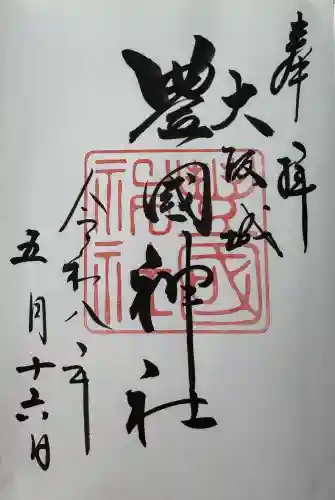 奉拝
大阪城
豊國神社
令和八年
五月十六日
豊國神社